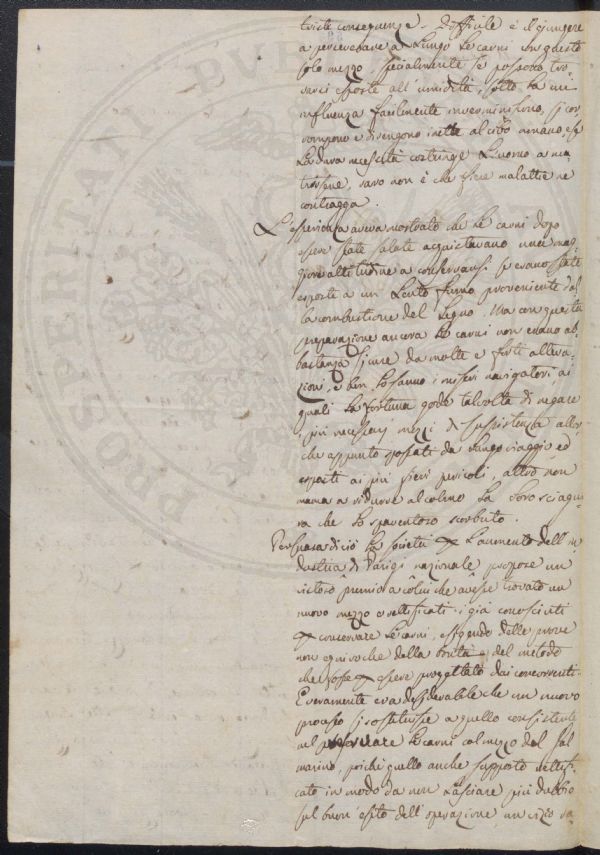 triste conseguenze. Difficile è il giungere
a perseverare a lungo le carni con questo
solo mezzo specialmente se possono tro-
varsi esposte all' umidità, sotto la cui
influenza facilmente inverminiscono, si cor
rompono e divengono inette al cibo umano e se
la dura necessità costringe l'uomo a nu
trirsene, raro non è che fiere malattie ne
contragga.
L'esperienza aveva mostrato che le carni dopo
essere state salate acquistavano una mag
giore attitudine a conservarsi se erano state
esposte a un lento fumo proveniente dal
la combustione del legno. Ma con questa
preparazione ancora le carni non erano ab
bastanza sicure da molte e forti altera
zioni, e ben lo sanno i miseri navigatori, ai
quali la fortuna gode talvolta di negare
i più necessarj mezzi di sussistenza allor
che appunto spossati da lungo viaggio, ed
esposti ai più fieri pericoli, altro non
manca a ridurre al colmo la loro sciagu
ra che lo spaventoso scorbuto.
Persuasa di ciò la società p l'aumento dell' in
dustria di Parigi nazionale propose un
premio a colui che avesse trovato un
nuovo mezzo o rettificati i già conosciuti
p conservare le carni, esigendo delle prove
non equivoche della bontà del metodo
che fosse p essere progettato dai concorrenti.
E veramente era desiderabile che un nuovo
processo si sostituisse a quello consistente
nel preservare le carni col mezzo del sal
marino, poichè quello anche supposto rettifi
cato in modo da non lasciare più dubbio
sul buon' esito dell' operazione, un vizio